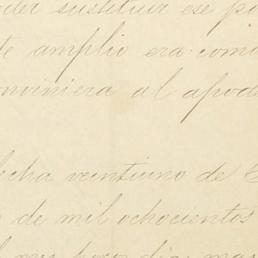 poder sustituir ese po
te amplio era como
conviniera al apode
fecha veintiuno de E
de mil ochocientos